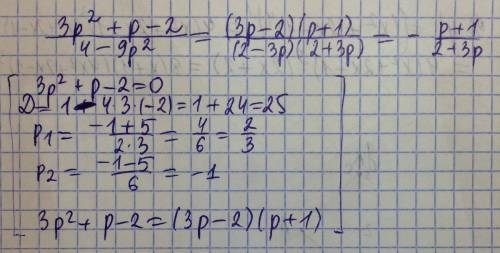 (3p² + p - 2)/(4 - 9p²) = ((3p-2)(p+1))/((2-3p)(2+3p)) = - (p+1)/(2+3p)
3p² + p - 2 = 0
D = 1 - 4·3·(-2) = 1 + 24 = 25
p₁ = (-1+5)/(2·3) = 4/6 = 2/3
p₂ = (-1-5)/6 = -1
3p² + p - 2 = (3p-2)(p+1)